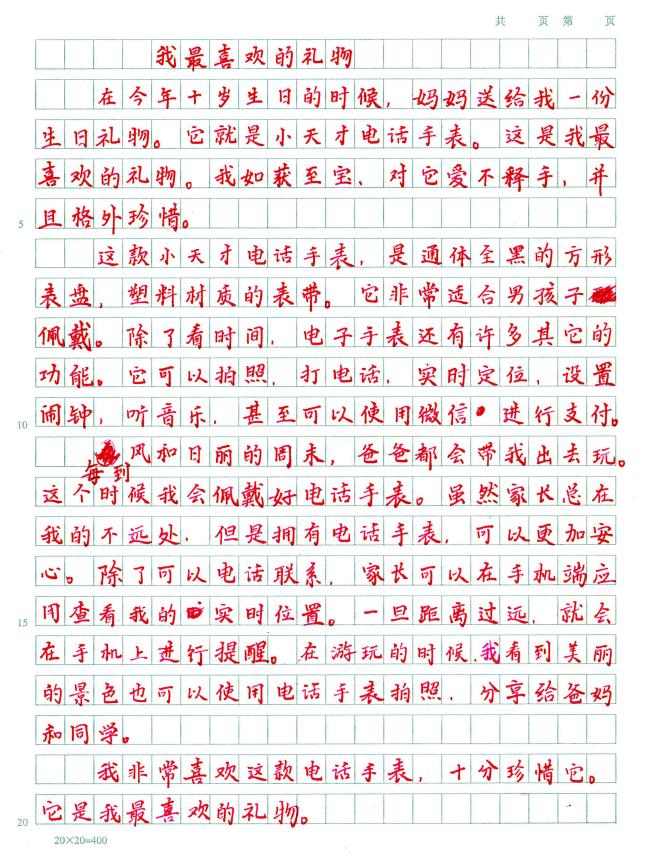 共 页 第 页
我最喜欢的礼物
在今年十岁生日的时候，妈妈送给我一份
生日礼物。它就是小天才电话手表。这是我最
喜欢的礼物。我如获至宝，对它爱不释手，并
5 且格外珍惜。
这款小天才电话手表，是通体全黑的方形
表盘，塑料材质的表带。它非常适合男孩子
佩戴。除了看时间，电子手表还有许多其它的
功能。它可以拍照，打电话，实时定位，设置
10 闹钟，听音乐，甚至可以使用微信 进行支付。
每到风和日丽的周末，爸爸都会带我出去玩。
这个时候我会佩戴好电话手表。虽然家长总在
我的不远处，但是拥有电话手表，可以更加安
心。除了可以电话联系，家长可以在手机端应
15 用查看我的 实时位置。一旦距离过远，就会
在手机上进行提醒。在游玩的时候，我看到美丽
的景色也可以使用电话手表拍照，分享给爸妈
和同学。
我非常喜欢这款电话手表，十分珍惜它。
20 它是我最喜欢的礼物。
20×20=400